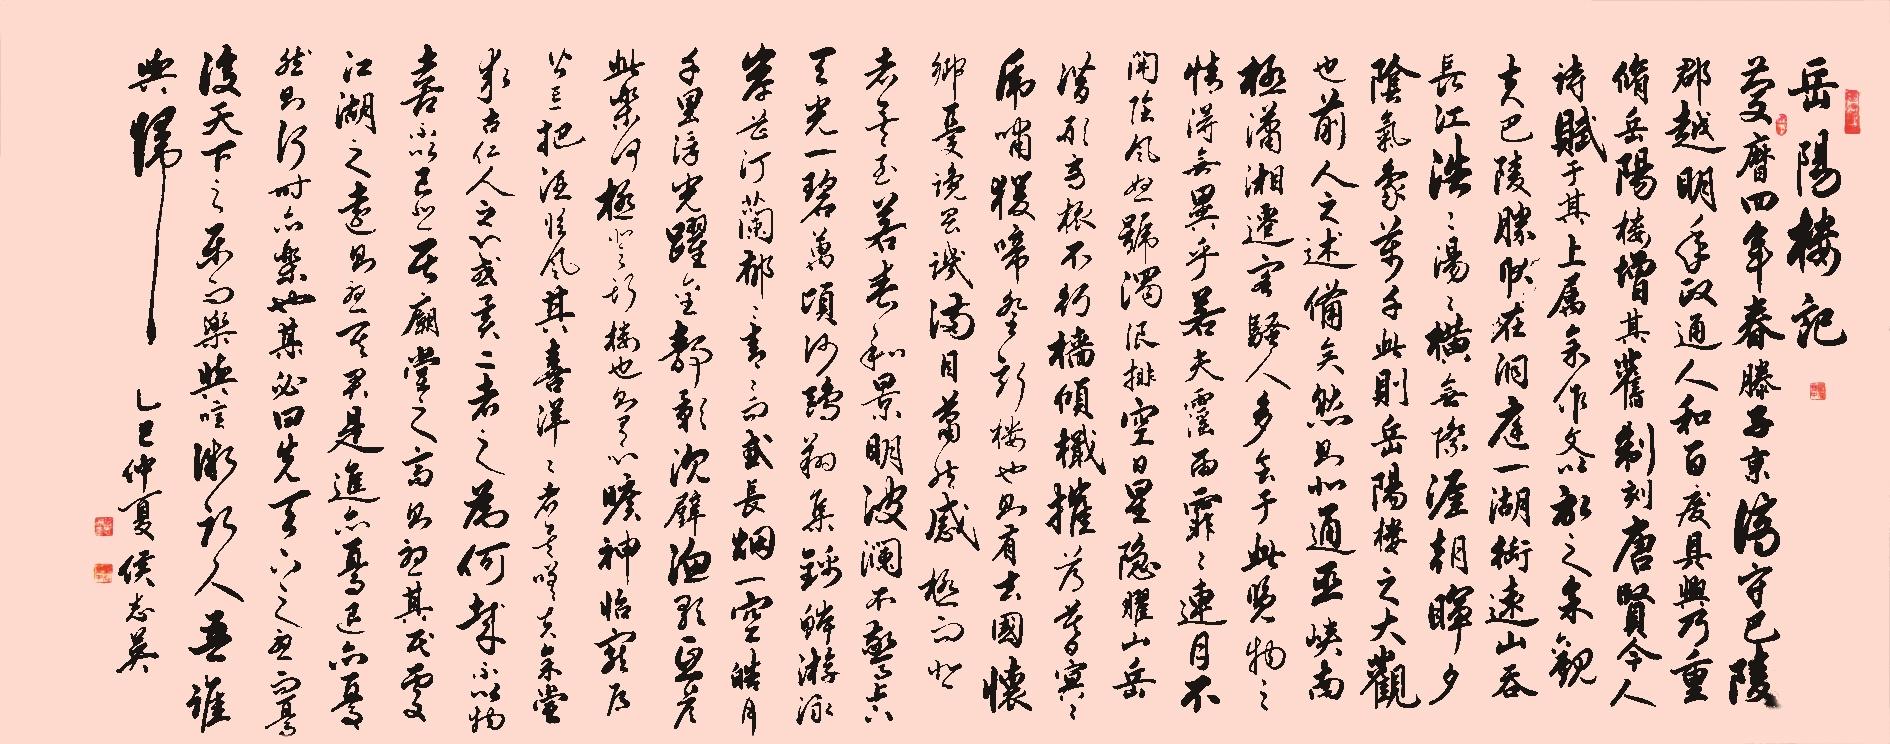 岳陽楼記
慶曆四年春滕子京謫守巴陵
郡越明年政通人和百废具興乃重
脩岳陽楼增其舊制刻唐賢今人
诗賦于其上属余作文以記之余觀
夫巴陵勝狀在洞庭一湖銜遠山吞
長江浩〻湯〻橫無際涯朝暉夕
陰氣象萬千此則岳陽楼之大觀
也前人之述備矣然則北通巫峽南
極瀟湘遷客騷人多會于此覽物之
情得無異乎若夫霪雨霏〻連月不
開陰風怒號濁浪排空日星隐曜山岳
潜形商旅不行檣傾檝摧薄暮冥〻
虎嘯猨啼登斯楼也則有去國懷
鄉憂讒畏譏滿目蕭然感極而悲
者矣至若春和景明波瀾不驚上下
天光一碧萬頃沙鷗翔集錦鱗游泳
岸芷汀蘭郁〻青〻而或長烟一空皓月
千里浮光躍金静影沉璧漁歌互答
此樂何極登斯楼也則有心曠神怡寵辱
皆忘把酒临風其喜洋〻者矣嗟夫余嘗
求古仁人之心或異二者之為何哉不以物
喜不以己悲居廟堂之高則憂其民處
江湖之遠則憂其君是進亦憂退亦憂
然則何时亦樂也其必曰先天下之憂而憂
後天下之乐而樂與噫微斯人吾誰
與歸
乙巳仲夏侯志英